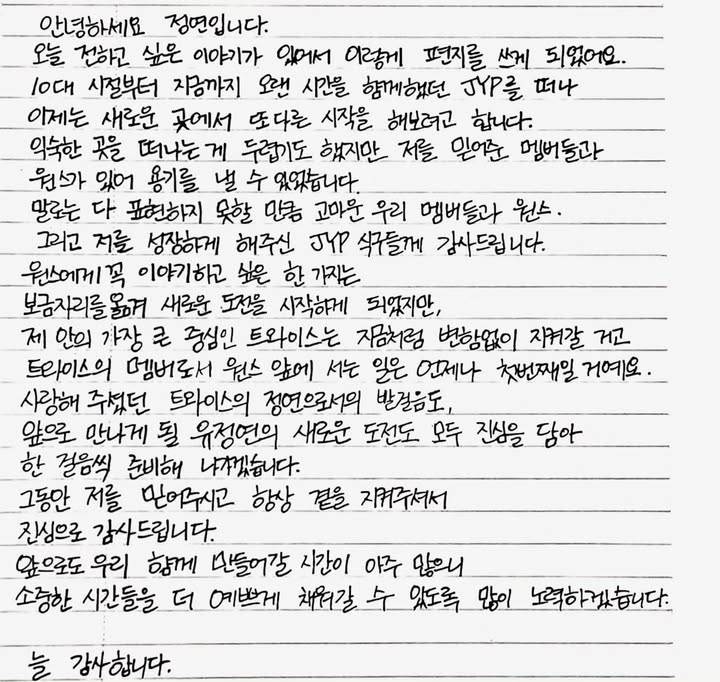 안녕하세요 정연입니다.
오늘 전하고 싶은 이야기가 있어서 이렇게 편지를 쓰게 되었어요.
10대 시절부터 지금까지 오랜 시간을 함께했던 JYP를 떠나
이제는 새로운 곳에서 또다른 시작을 해보려고 합니다.
익숙한 곳을 떠나는게 두렵기도 했지만 저를 믿어준 멤버들과
원스가 있어 용기를 낼 수 있었습니다.
말로는 다 표현하지 못할 만큼 고마운 우리 멤버들과 원스.
그리고 저를 성장하게 해주신 JYP 식구들께 감사드립니다.
원스에게 꼭 이야기하고 싶은 한 가지는
보금자리를 옮겨 새로운 도전을 시작하게 되었지만,
제 안의 가장 큰 중심인 트와이스는 지금처럼 변함없이 지켜갈 거고
트와이스의 멤버로서 원스 앞에 서는 일은 언제나 첫번째일 거예요.
사랑해 주셨던 트와이스의 정연으로서의 발걸음도,
앞으로 만나게 될 유정연의 새로운 도전도 모두 진심을 담아
한 걸음씩 준비해 나가겠습니다.
그동안 저를 믿어주시고 항상 곁을 지켜주셔서
진심으로 감사드립니다.
앞으로도 우리 함께 만들어갈 시간이 아주 많으니
소중한 시간들을 더 예쁘게 채워갈 수 있도록 많이 노력하겠습니다.
늘 감사합니다.